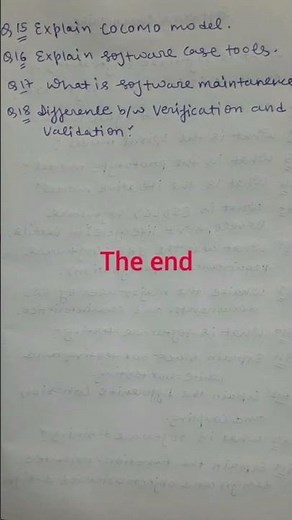 Q.15 Explain COCOMO model.
Q.16 Explain software case tools.
Q.17 What is software maintanence
Q.18 Difference b/w Verification and
Validation?
The end